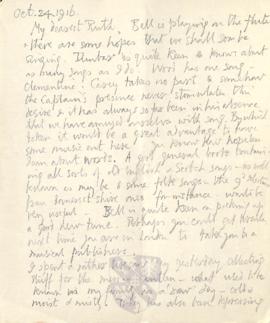 Oct. 24. 1916.
My dearest Ruth, Bell is playing on the flute
& there are some hopes that we shall soon be
singing. is quite keen & knows about
as many songs as I do. Wood has one song -
clementine! Casey takes no part & somehow
the Captain's presence never stimulates this
desire & it has always so far been in his absence
that we have amused ourselves with song.
it would be a great advantage to have
some music out here you know
down about words. A good general book contain-
ing all sorts of old English & Scotch songs - as well
known as may be & some folk songs - the
from Somersetshire ones for instance - would be
very useful - Bell is quite keen on picking up
a good new tune. Perhaps you could get
next time you are in London to take you to a
musical publishers.
I spent a rather yesterday collecting
stuff for the - what was
known as my a raw day - cold
moist & misty. has also been depressing